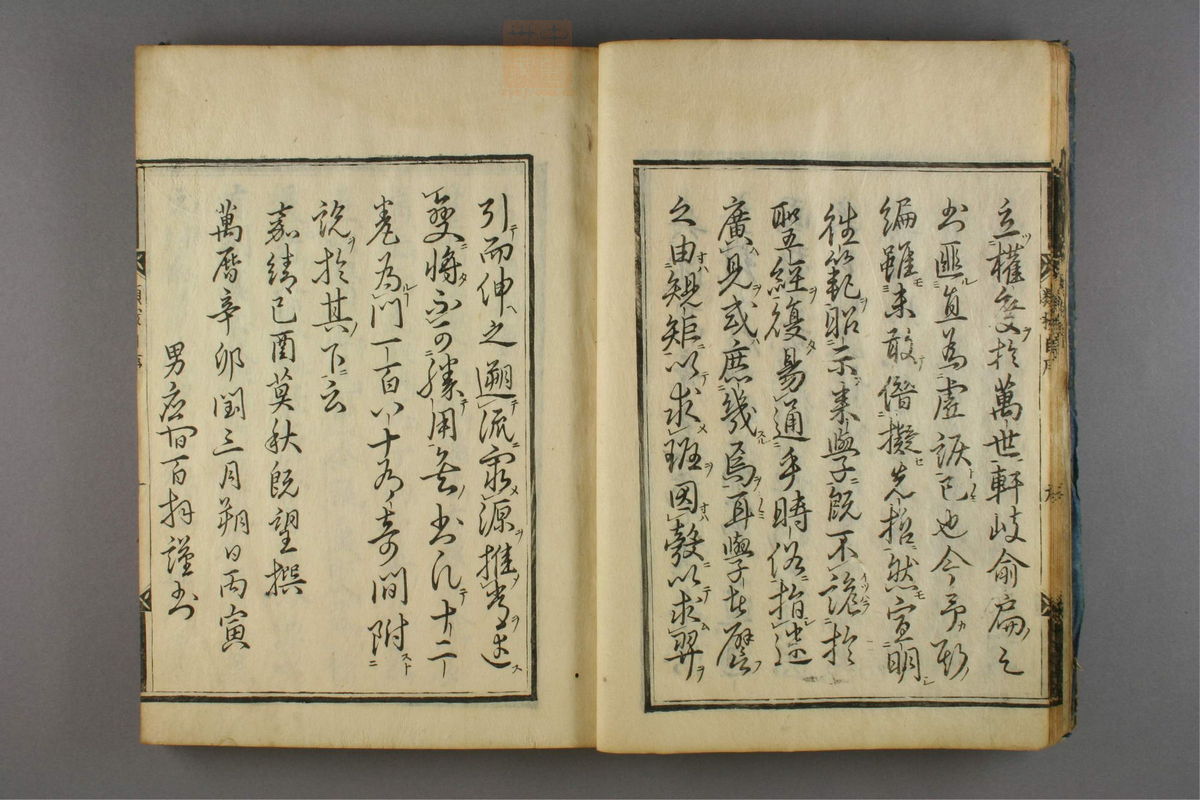 立權變於萬世軒岐俞扁之
書匪直為虛語已也今予斯
編雖未敢僭擬先哲然宣明
往範昭示來學既不詭於
聖經復易通乎時俗指迷
廣見或庶幾焉耳學者譬
之由規矩以求班因彀以求羿
引而伸之遡流窮源推常達
變將不可勝用矣書凡十二
卷為門一百八十有奇間附
說於其下云
嘉靖己酉莫秋既望撰
萬曆辛卯閏三月朔日丙寅
男應宿百拜謹書